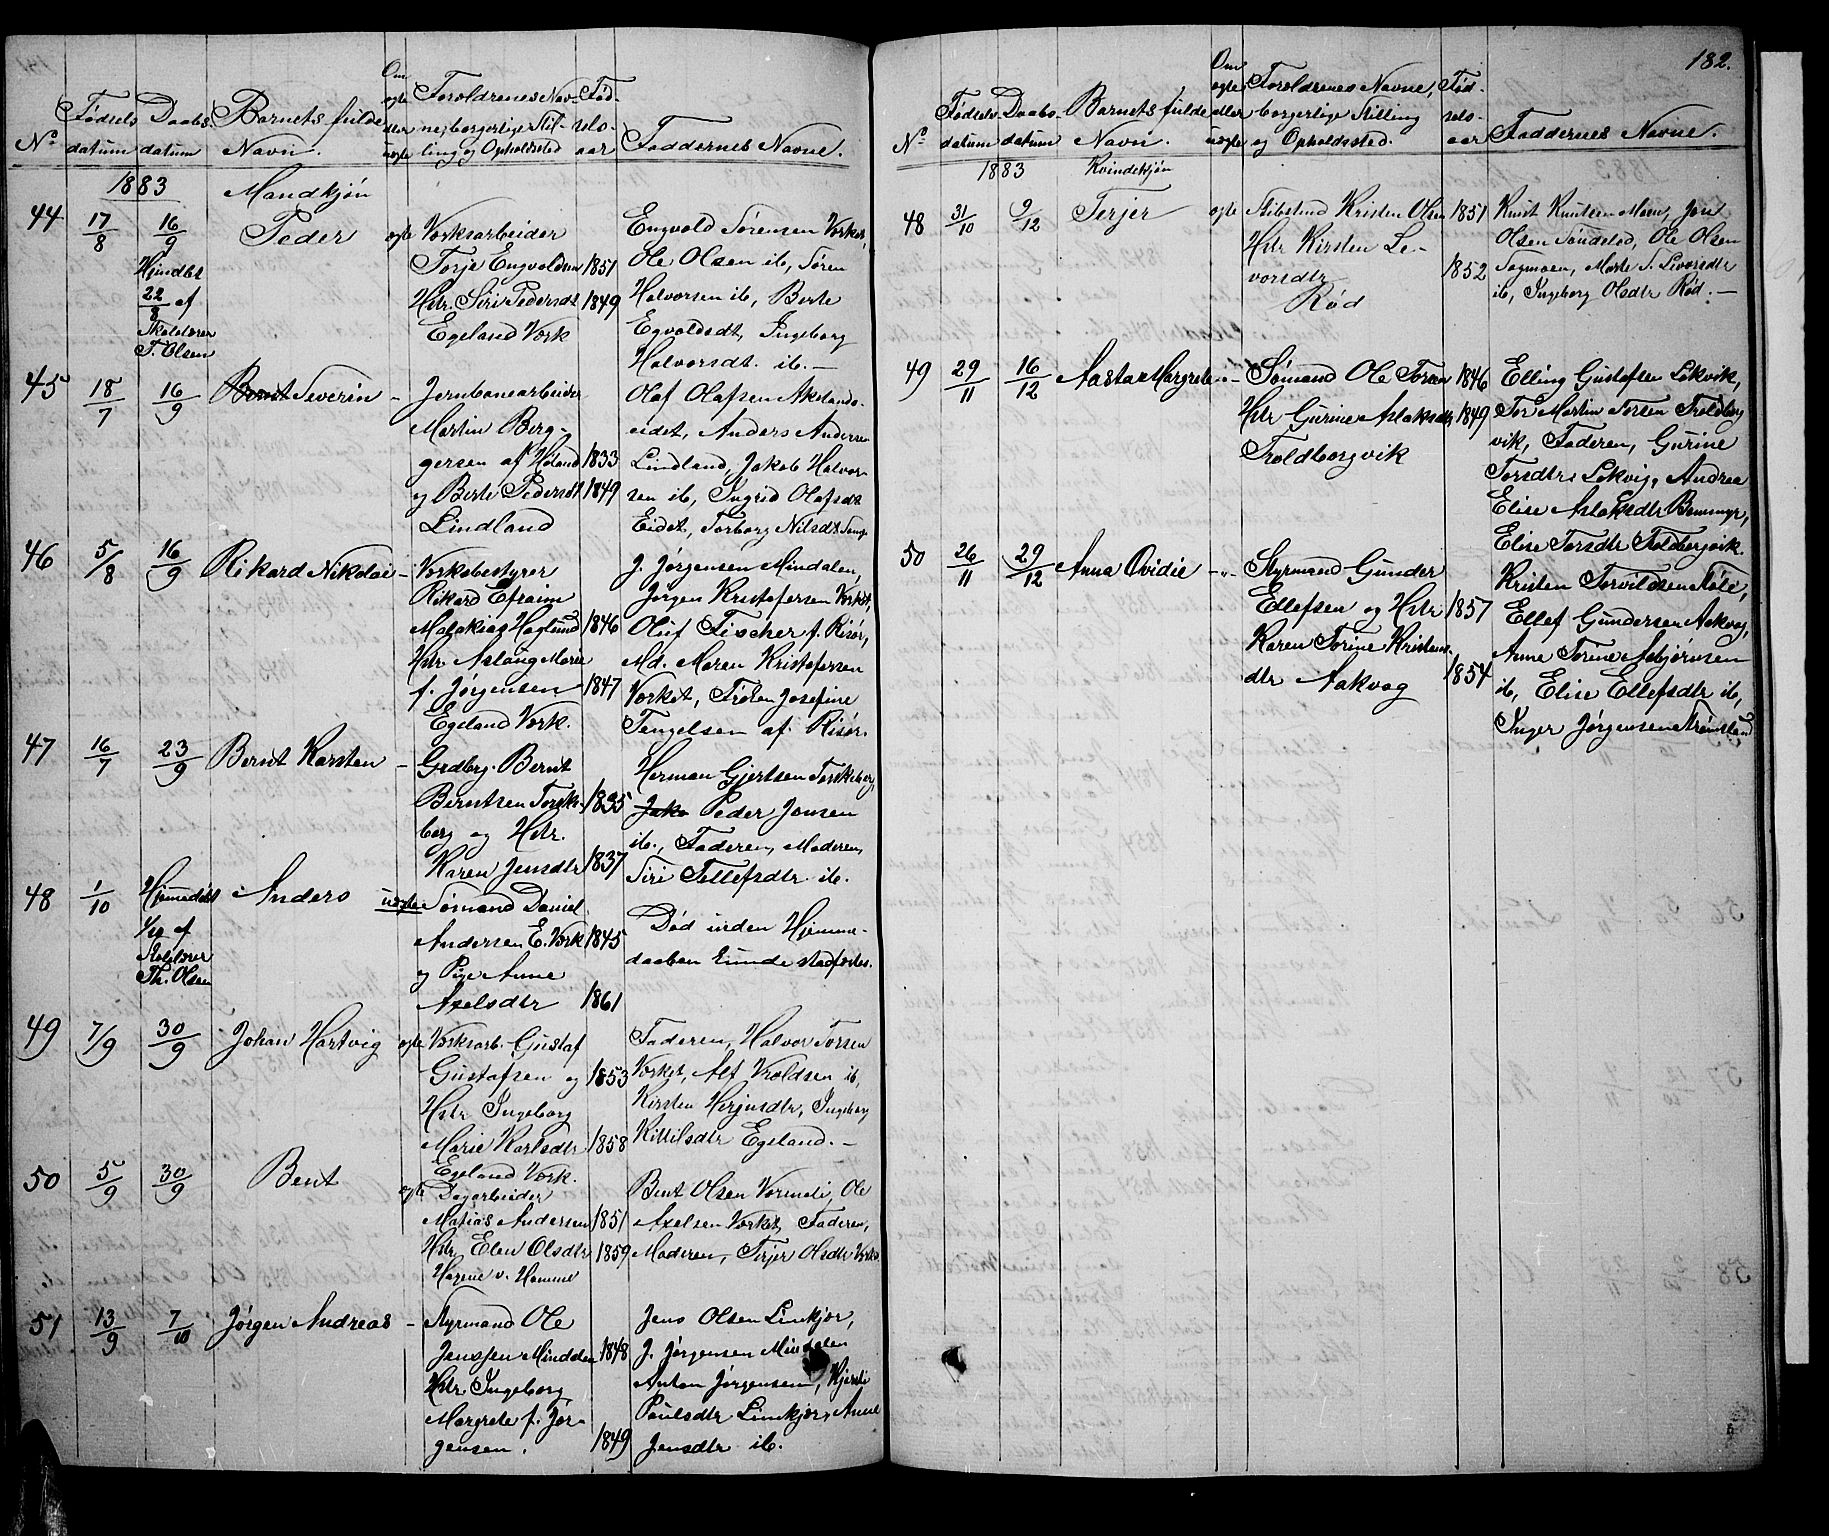 182.
No Fødsels datum Daabs datum Barnets fulde Navn. Om ægte eller uægte Forældrenes Navne, borgerlige Stilling og Opholdsted Fødselsaar Faddernes Navne.
1883 Mandkjøn
44 17/8 16/9 Peder ægte Værksarbeider Engvold Sørensen Værket,
Hjmdbt Torje Engvoldsen 1851 Ole Olsen ib, Søren
22/8 af Hstr. Siri Pedersdt 1849 Halvorsen ib, Berte
Skolelærer Egeland Værk Egvoldsdt, Ingeborg
T. Olsen Halvorsdt. ib. —
45 18/7 16/9 Bernt Severin - Jernbanearbeider Olaf Olafsen Akelands-
Martin Berg- eidet, Anders Andersen
gersen af Høland 1833 Lindland, Jakob Halvor-
og Berte Pedersdt 1849 sen ib, Ingrid Olafsdt
Lindland Eidet, Torborg Nilsdt
46 5/8 16/9 Rikard Nikolai - Værksbestyrer J. Jørgensen Mindalen,
Rikard Efraim Jørgen Kristofersen Værket,
Malakias Haglund 1846 Oluf Fischer f. Risør,
Hstr Aslaug Marie Md. Maren Kristofersen
f. Jørgensen 1847 Værket, Frøken Josefine
Egeland Værk. Tengelsen af Risør.
47 16/7 23/9 Bernt Karsten - Grdbrg. Bernt Herman Gjertsen Torskeberg,
Berntsen Torsk- 1835 Jako Peder Jensen
berg og Hstr. ib., Faderen, Moderen,
Karen Jensdtr 1837 Siri Tellefsdtr ib.
48 1/10 Hjemmedøbt Anders uægte Sømand Daniel Død inden Hjemme-
af Andersen E. Værk 1845 daaben kunde stadfæstes.
Skolelærer og Pige Anne
Th. Olsen Axelsdtr 1861
49 7/9 30/9 Johan Hartvig ægte Værksarb. Gustaf Faderen, Halvor Torsen
Gustafsen og 1853 Værket, Alf Vroldsen ib,
Hstr Ingeborg Kirsten Herjusdtr, Ingeborg
Marie Karlsdtr 1858 Kittilsdtr Egeland. —
Egeland Værk.
50 5/9 30/9 Bent ægte Dagarbeider Bent Olsen Vormeli, Ole
Matias Andersen 1851 Axelsen Værket, Faderen,
Hstr Elen Olsdtr 1859 Moderen, Terjer Olsdtr Værket
Hagene v. Homme
51 13/9 7/10 Jørgen Andreas - Styrmand Ole Jens Olsen Limkjær,
Jenssen Mindalen 1848 J. Jørgensen Mindalen
Hstr Ingeborg Anton Jørgensen, Kjersti
Margrete f. Jør- Poulsdtr Limkjær, Anne
gensen. 1849 Jensdtr ib.
No Fødsels datum Daabs datum Barnets fulde Navn. Om ægte eller uægte Forældrenes Navne, borgerlige Stilling og Opholdssted. Fødselsaar Faddernes Navne.
1883 Kvindekjøn
48 31/10 9/12 Terjer ægte Kristen Olsen 1851 Knut Knutsen Moen, Jon
Hstr Kirsten Le- Olsen Sundsted, Ole Olsen
vorsdtr 1852 Sagmoen, Marte S. Livorsdtr
Rød ib, Ingeborg Olsdtr Rød. —
49 29/11 16/12 Aasta Margrete -"- Sømand Ole Torsen 1846 Elling Gustafsen Lekvik,
Hstr Gurine Aslaksdtr 1849 Tor Martin Torsen Troldberg
Troldborgvik vik, Faderen, Gurine
Torsdtr Lekvig, Andrea
Elise Aslaksdtr Bommyr,
Elise Torsdtr Troldbergvik.
50 26/11 29/12 Anna Ovidie -"- Styrmand Gunder Kristen Torvildsen
Ellefsen og Hstr 1857 Ellef Gundersen Aakvag,
Karen Torine Kristens- Anne Torine Asbjørnsen
dtr Aakvag 1854 ib, Elise Ellefsdtr ib,
Inger Jørgensen